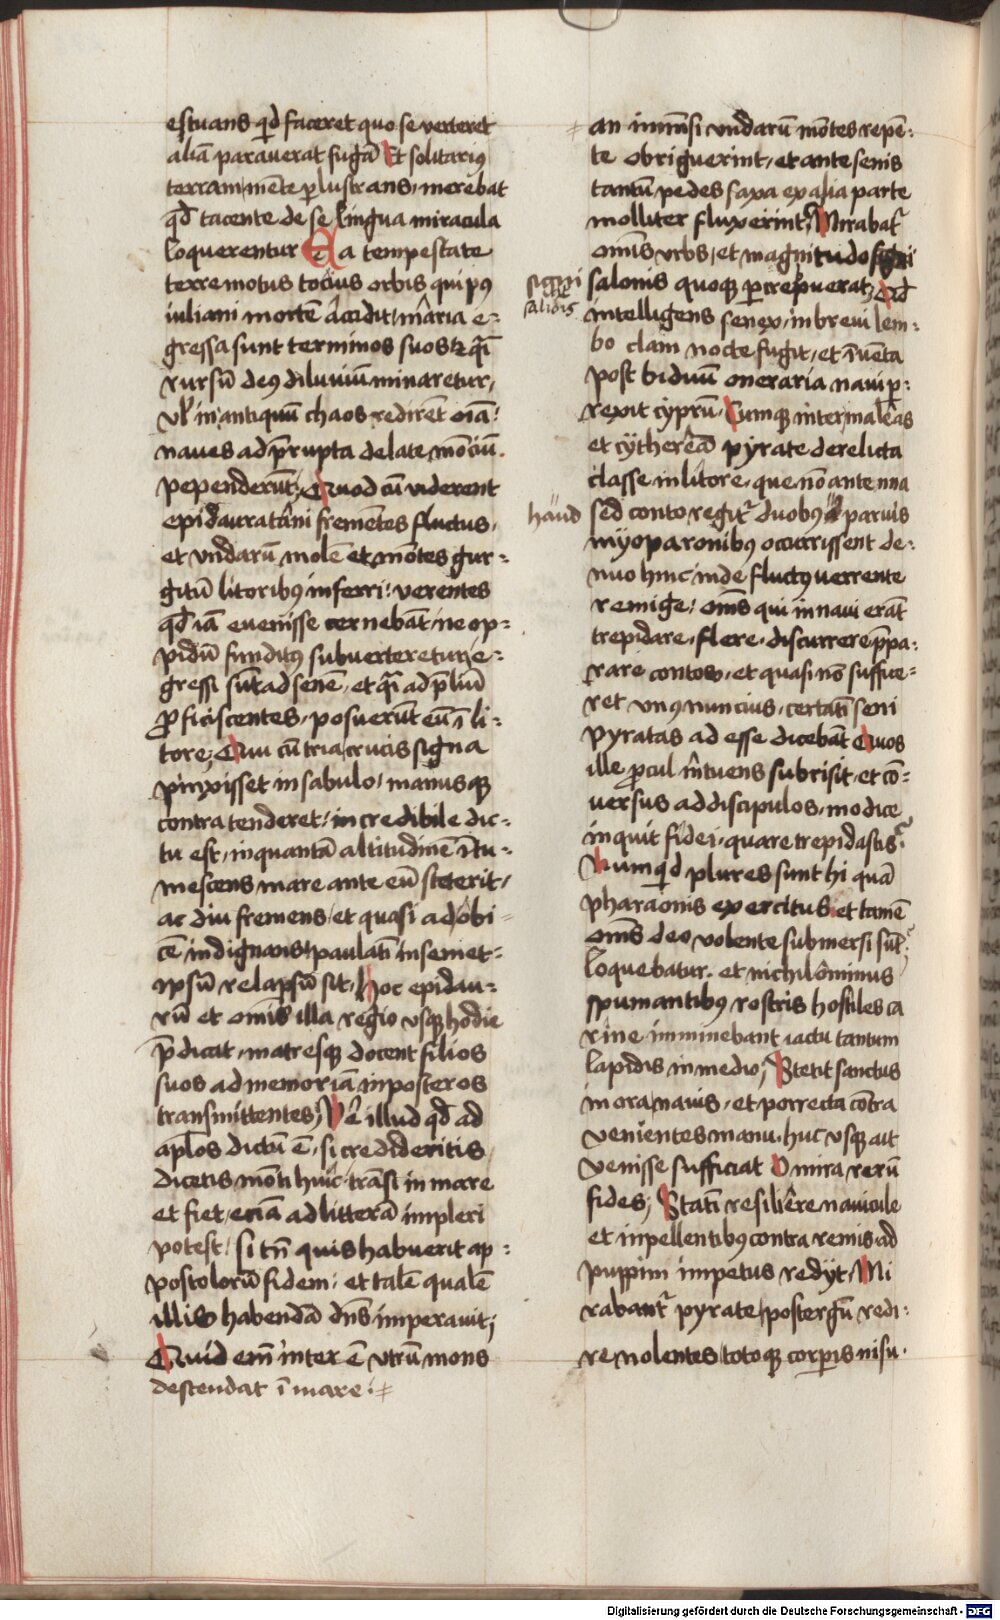 estuans qid faceret quo se verteret
aliā parauerat fugā Et solitariꝰ
terram mēte ꝑlustrans, merebat
qd tacente de se lingua miracula
loquerentur Ea tempestate
terremotus tocius orbis qui pꝰ
iuliani mortē accidit, maria e-
gressa sunt terminos suos et qᵃi
rursū deꝰ diluuiū minaretur,
vl' in antiquū chaos redirēt oīa:
naues ad p̄rupta delate mōciū.
pependerūt; Quod cū viderent
epidauratani fremētes fluctus,
et vndarū molē et mōtes gur-
gitū litoribꝰ inferri: verentes
qd iā euenisse cernebāt, ne op-
pidū funditꝰ subuerteretur, e-
gressi sūt ad senē, et qᵃi ad p̄liū
ꝓficiscentes, posuerūt eū ī li-
tore; Qui cū tria crucis signa
pinxisset in sabulo, manusqꝫ
contra tenderet: incredibile dic-
tu est, in quantā altitudinē ītu-
mescens mare ante eū steterit,
ac diu fremens, et quasi ad obi-
cē indignans paulatī in semet-
ipsū relapsū sit. Hoc epidau-
rū et omīs illa regio vsqꝫ hodie
p̄dicat, matresqꝫ docent filios
suos ad memoriā in posteros
transmittentes; Vē illud qd ad
aplos dictū ē, si credideritis
dicetis mōti huic, trāsi in mare
et fiet, eciā ad litterā impleri
potest, si tn̄ quis habuerit ap-
postolorū fidem, et talē qualē
illis habendā dn̄s imperauit;
Quid em̄ inter ē vtrū mons
descendat ī mare:
an immēsi vndarū mōtes repē-
te obriguerint, et ante senis
tantū pedes saxa ex alia parte
molliter fluxerint; Mirabat
omīs vrbs, et magnitudo signi
signi salonis quoqꝫ ꝑcrepuerat; Qd
salidis intelligens senex, in breui lem-
bo clam nocte fugit, et īuēta
post biduū oneraria naui p-
rexit cyprū. Cumqꝫ inter maleas
et cytherēā pyrate derelicta
classe in litore, que nō antenna
haud sed conto regitʳ duobꝰ paruis
myoparonibꝰ occurrissent de-
nuo hinc inde fluctꝰ verrente
remige: oms qui in naui erāt
trepidare, flere, discurrere p̄pa-
rare contos, et quasi nō suffice-
ret vnꝰ nuncius, certatī seni
pyratas adesse dicebāt Quos
ille ꝓcul intuens subrisit, et cō-
uersus ad discipulos, modice
inquit fidei, quare trepidastis?
Numqid plures sunt hi quā
pharaonis exercitus et tamē
oms deo volente submersi sūt?
Loquebatur, et nichilominus
spumantibꝰ rostris hostiles ca
rine imminebant iactu tantum
lapidis in medio; Stetit sanctus
in ora nauis, et porrecta cōtra
venientes manu. huc vsqꝫ ait
venisse sufficiat O mira rerū
fides; Statī resiliere nauicule
et inpellentibꝰ contra remis ad
puppim impetus redyt, Mi
rabantʳ pyrate post ergū redi-
re nolentes, totoqꝫ corꝑis nisu.
Digitalisierung gefördert durch die Deutsche Forschungsgemeinschaft - DFG